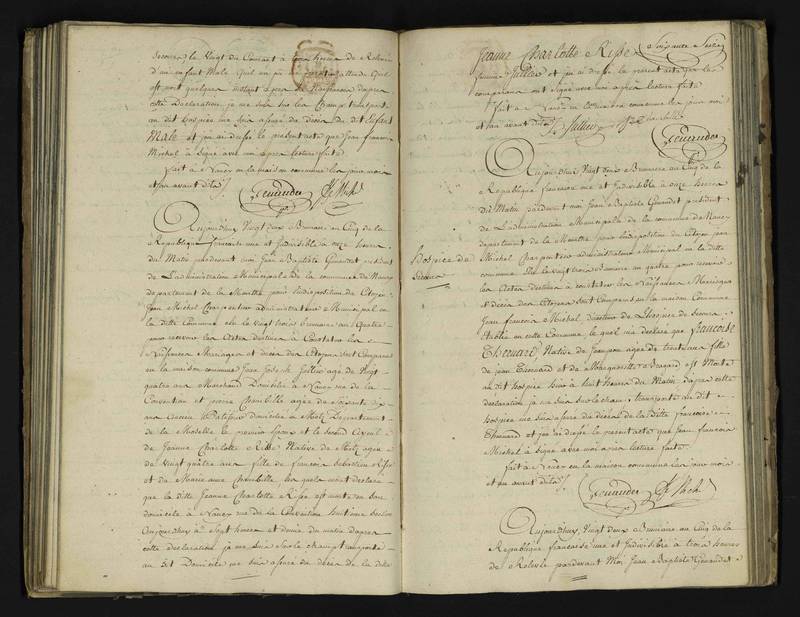 Secours le Vingt du Courant à heures de Relevée
d'un enfant Male quil
est mort quelques instant après sa Naissance dapres
cette Déclaration je me suis sur les Champ transporté
au dit hospice me suis assuré du décès de dit Enfant
Male et jai ai dressé le present acte que Jean françois
Michel à Signé avec moi apres lecture faite
fait à Nancy en la maison commune les jour mois
et an avant dits
Genaudet Jf Mich
Aujourdhuy Vingt deux Brumaire an Cinq de la
République francaise une et Indivisible à onze heures
du Matin pardevant moi Jean Baptiste Genaudet président
de L'administration Municipale de la commune de Nancy
departement de la Meurthe pour Indisposition du Citoyen
Jean Michel Charpentier administrateur Municipal en
la ditte Commune élu le Vingt trois Brumaire an Quatre
pour recevoir les Actes destinés à Constater les
Naissances Mariages et décès des Citoyens Sont Comparus
en la maison commune Jean Joseph Jullier agé de Vingt
quatre ans Marchand Domicilié à Nancy rue de la
Convention et pierre Chambille agé de Soixante dix
ans domicilié à Metz Département
de la Moselle le premier Epoux et le second Ayeul
de Jeanne Charlotte Risse Native de Metz agée
de Vingt quatre ans fille de francois Sébastien Risse
et de Marie anne Chambille les quels mont declaré
que la ditte Jeanne Charlotte Risse est morte en son
domicile à Nancy rue de la Convention huitieme Section
Aujourdhuy à Sept heures et demie du matin dapres
cette declaration je me suis sur le champ transporté
au dit Domicile me suis assuré du décès de la ditte
Jeanne Charlotte Risse Soixante Sector
femme Jullier et jai ai dressé le present acte que les
comparans ont Signé avec moi après lecture faite
fait à Nancy en la maison commune les jour mois
et an avant dits Jullier Chambille
Genaudet
Aujourdhuy Vingt deux Brumaire an Cinq de la
République francaise une et Indivisible à onze heures
du Matin pardevant moi Jean Baptiste Genaudet président
de L'administration Municipale de la commune de Nancy
departement de la Meurthe pour Indisposition du Citoyen Jean
Hospice de
Secours
Michel Charpentier administrateur Municipal en la ditte
commune élu le Vingt trois Brumaire an quatre pour recevoir
les Actes destinés à constater les Naissances Mariages
et décès des Citoyens Sont Comparus en la maison Commune
Jean francois Michel directeur de L'hospice de Secours
établi en cette Commune, le quel ma declaré que francoise
Thecnard Native de agée de trente ans fille
de Jean Thecnard et de Marguerite Bragard est Morte
au dit hospice hier à huit heures du Matin dapres cette
declaration je me suis sur le champ transporté au dit
hospice me suis assuré du décès de la Ditte francoise
Thecnard et jai ai dressé le present acte que Jean francois
Michel à Signé avec moi après lecture faite
fait à Nancy en la maison commune les jour mois
et an avant dits
Genaudet Jf Mich
Aujourdhuy Vingt deux Brumaire an Cinq de la
République francaise une et Indivisible à trois heures
de Relevée pardevant Moi Jean Baptiste Genaudet